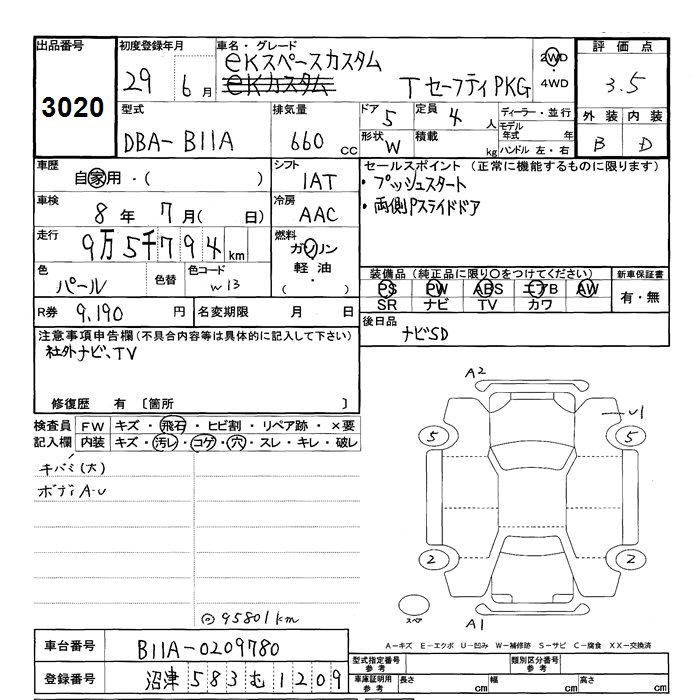 出品番号 初度登録年月 車名・グレード 評価点
3020 29 6月 eKスペースカスタム
eKカスタム TセーフティPKG 2WD・4WD 3.5
型式 排気量 ドア 5 定員 4人 ディーラー・並行 外装 内装
DBA-B11A 660cc 形状 W 積載 kg モデル年式 年 ハンドル 左・右 B D
車歴 自家用・( ) シフト IAT セールスポイント (正常に機能するものに限ります)
・プッシュスタート
車検 8年 7月( 日) 冷房 AAC ・両側Pスライドドア
走行 9万5千794km 燃料 ガソリン
軽油・
( )
色 パール 色替 色コード W13 装備品(純正品に限り○をつけてください) 新車保証書
PS PW ABS エアB AW 有・無
SR ナビ TV カワ
R券 9,190円 名変期限 月 日 後日品 ナビSD
注意事項申告欄(不具合内容等は具体的に記入して下さい)
社外ナビ、TV
修復歴 有 〔箇所 〕
検査員 FW キズ・飛石・ヒビ割・リペア跡・×要
記入欄 内装 キズ・汚レ・コゲ・穴・スレ・キレ・破レ
キバミ(大)
ボディA-U
95801km
A2
U1
5 5
2 2
スペア A1
A-キズ E-エクボ U-凹み W-補修跡 S-サビ C-腐食 XX-交換済
車台番号 B11A-0209780 型式指定番号 参考 類別区分番号 参考
登録番号 沼津 583 む 1209 車庫証明用 参考 長さ cm 幅 cm 高さ cm